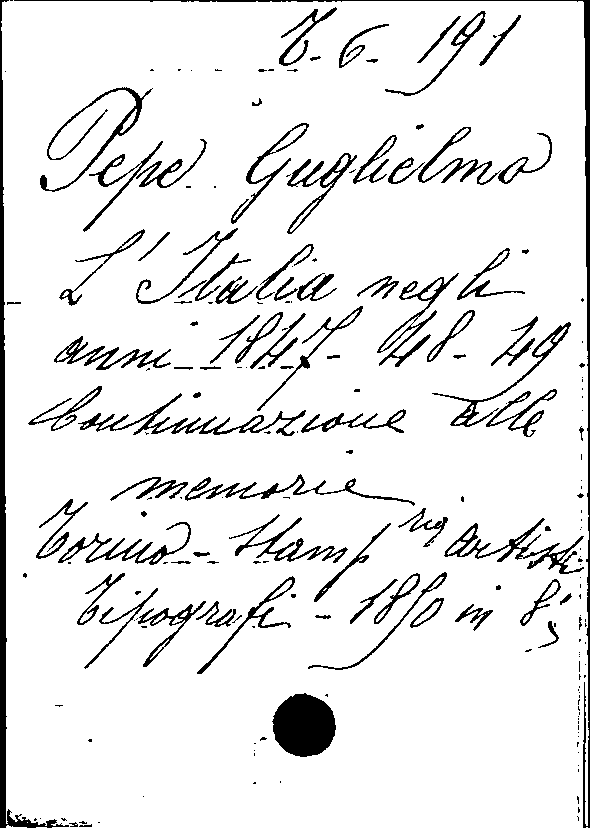 T. 6. 191
Pepe Guglielmo
L'Italia negli
anni 1847-48-49
Continuazione alle
memorie
Torino - Stamp ria Artisti
Tipografi - 1850 in 8°;